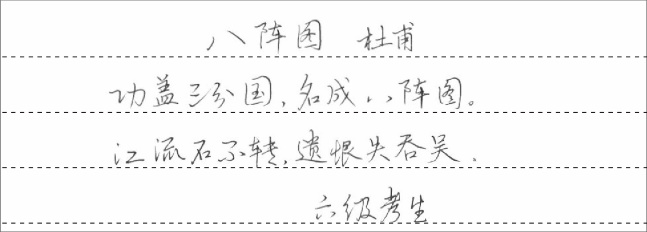 八阵图 杜甫
功盖三分国,名成八阵图。
江流石不转,遗恨失吞吴.
六级考生